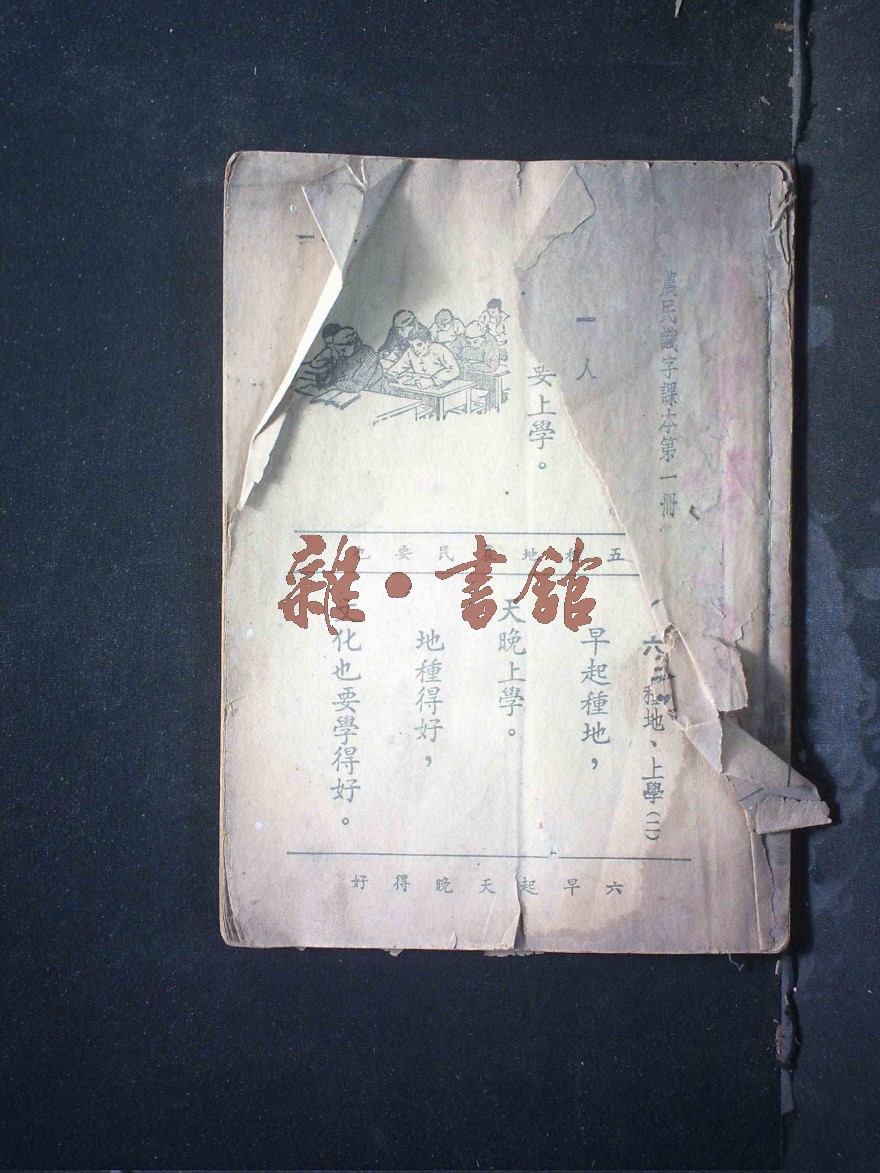 農民識字課本第一冊
一
人
一
要上學。
五種地農民要也
六、種地、上學(二)
早起種地，
天晚上學。
地種得好，
文化也要學得好。
六早起天晚得好
雜·書館